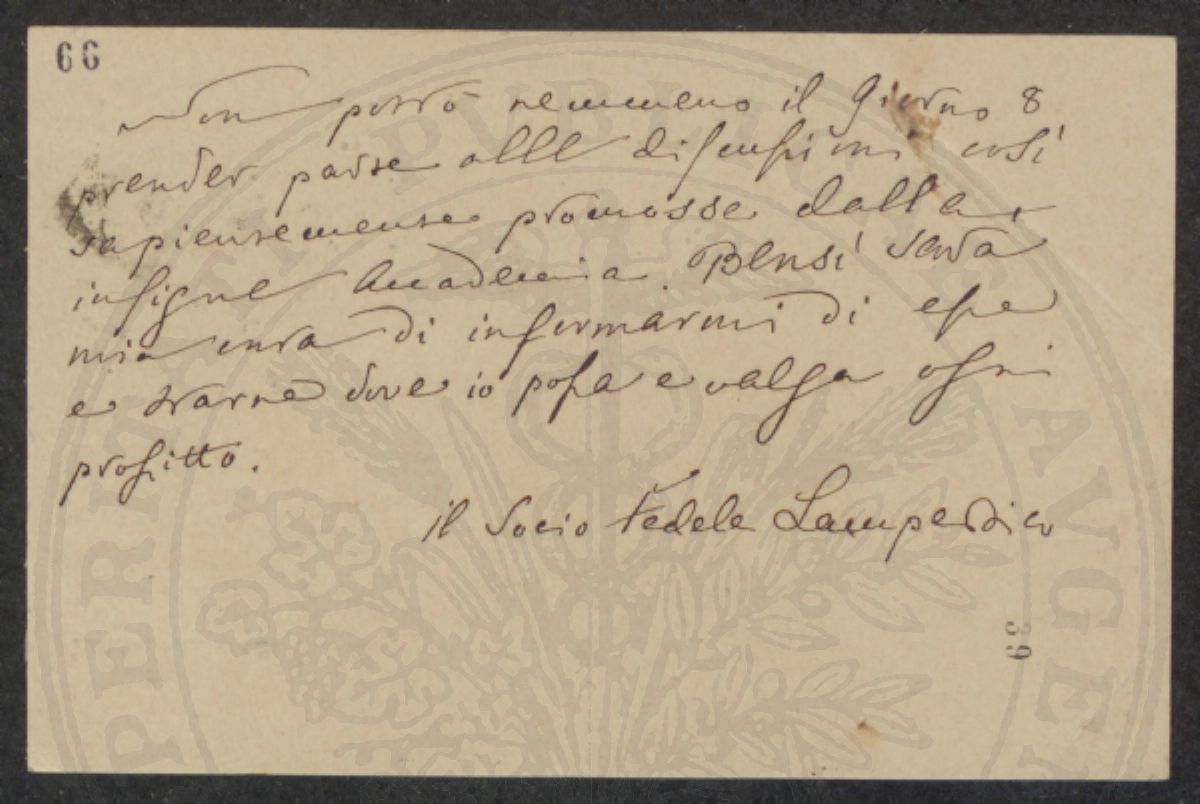 66
Non potrò nemmeno il giorno 8
prender parte alle discussioni così
sapientemente promosse dalla
insigne Accademia. Bensì sarà
mia cura di informarmi di esse
e trarne dove io possa e valga ogni
profitto.
il Socio Fedele Lampertico
69
PUBLICAE
PERITATI
AUGE